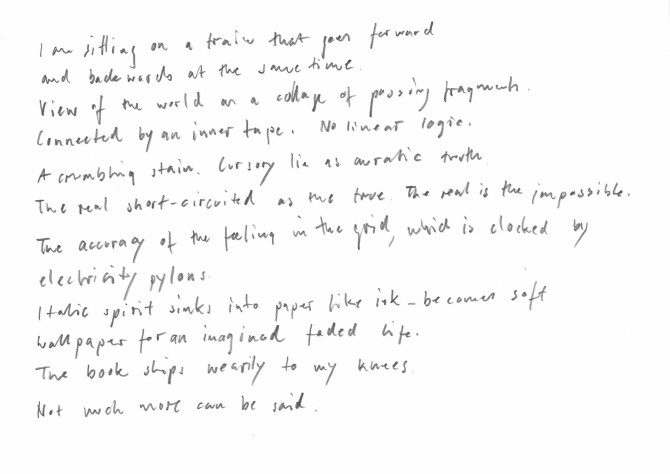 I am sitting on a train that goes forward
and backwards at the same time.
View of the world as a collage of passing fragments.
Connected by an inner tape. No linear logic.
A crumbling stain. Cursory lie as auratic truth.
The real short-circuited as the true. The real is the impossible.
The accuracy of the feeling in the grid, which is clocked by
electricity pylons.
Italic spirit sinks into paper like ink – becomes soft
wallpaper for an imagined faded life.
The book slips wearily to my knees.
Not much more can be said.